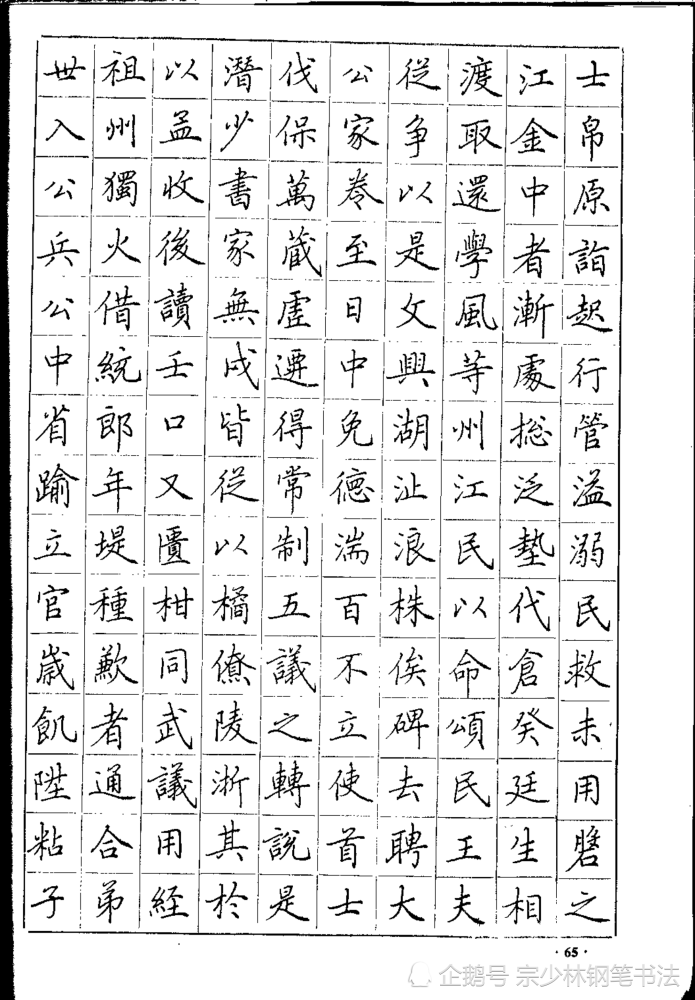 世祖以潛伐公從渡江士
入州孟少保家爭取金帛
公獨收書萬卷以還中原
兵火後家藏至是學者詣
公借讀無虛日文風漸起
中統壬戌遷中興等處行
省郎口皆得免湖州総管
踰年又從常德沚江泛溢
立堤匱以制湍浪民墊溺
官種柑橘五百株以代民
歲歉同僚議不俟命倉救
飢者武陵之立碑頌癸未
陞通議浙轉使去民廷用
粘合用其說首聘王生
子弟經於是士大夫相之
·65·
企鹅号 宗少林钢笔书法